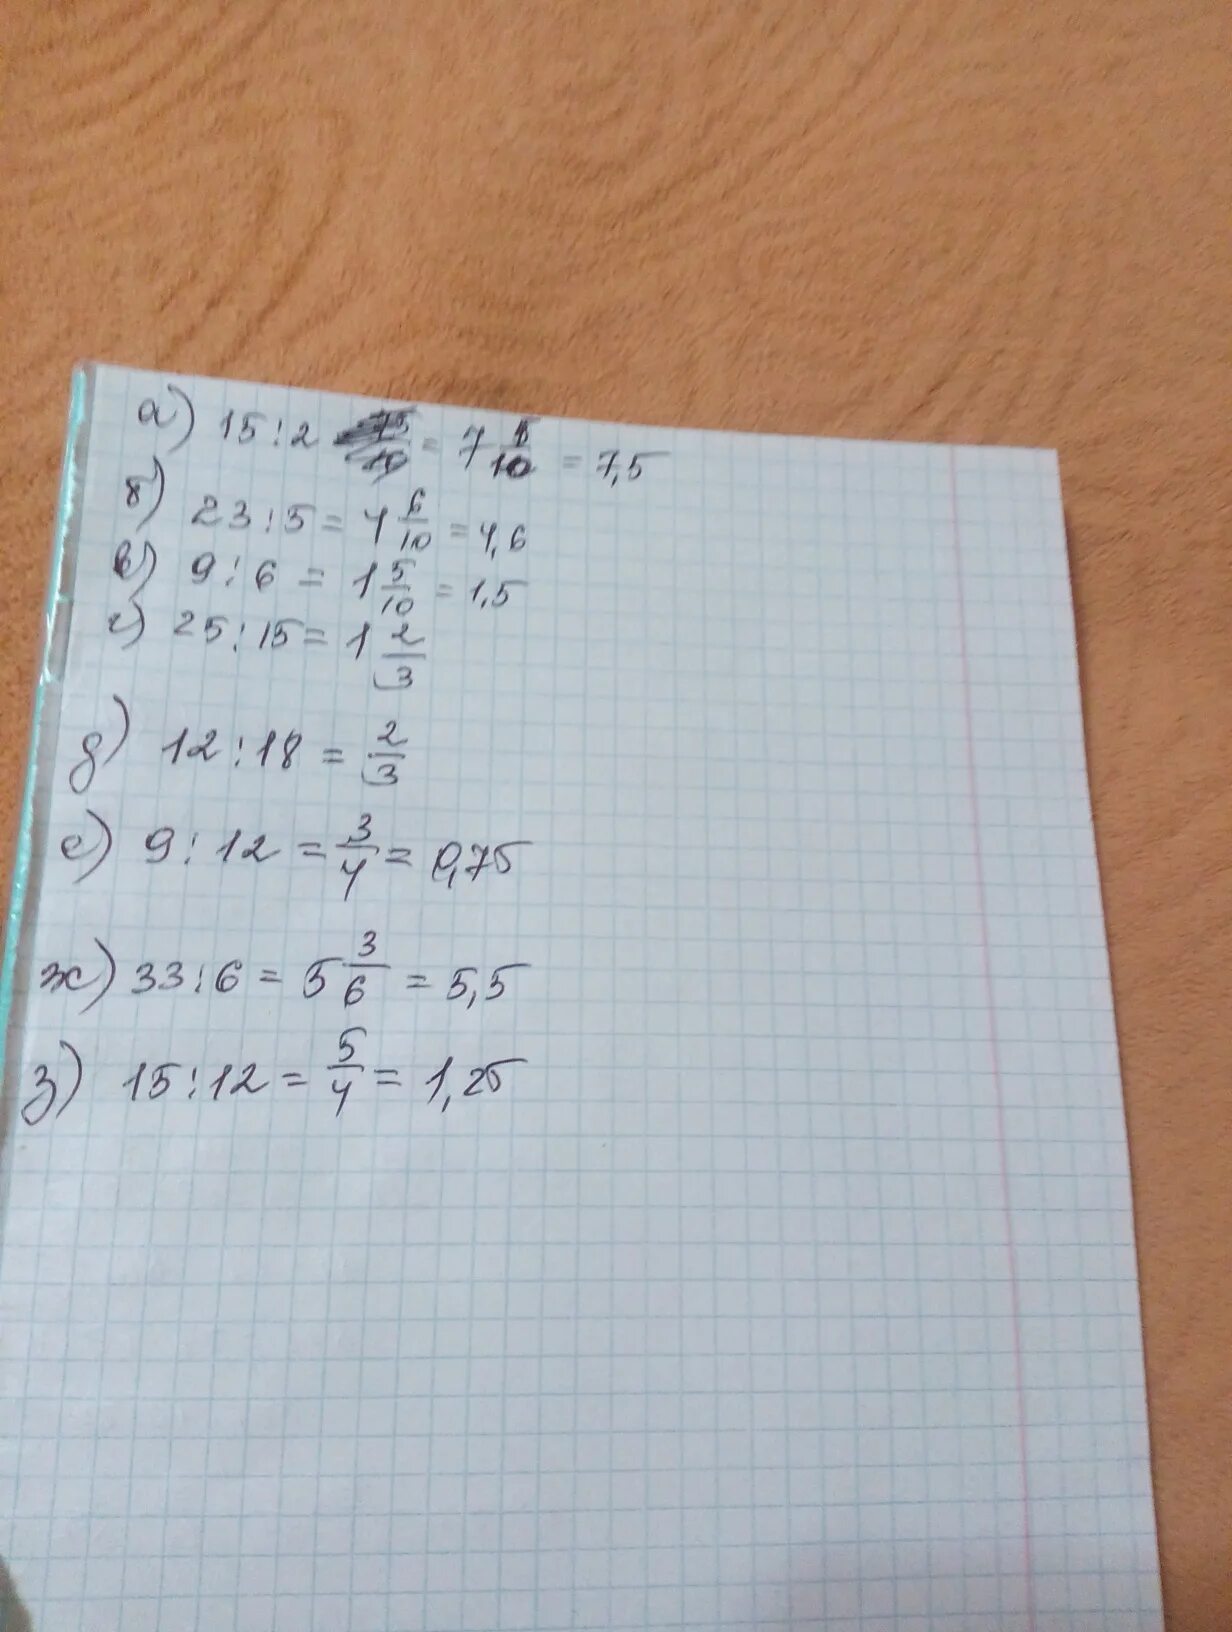 а) 15:2 = 7 5/10 = 7,5
б) 23:5 = 4 6/10 = 4,6
в) 9:6 = 1 5/10 = 1,5
г) 25:15 = 1 2/3
д) 12:18 = 2/3
е) 9:12 = 3/4 = 0,75
ж) 33:6 = 5 3/6 = 5,5
з) 15:12 = 5/4 = 1,25